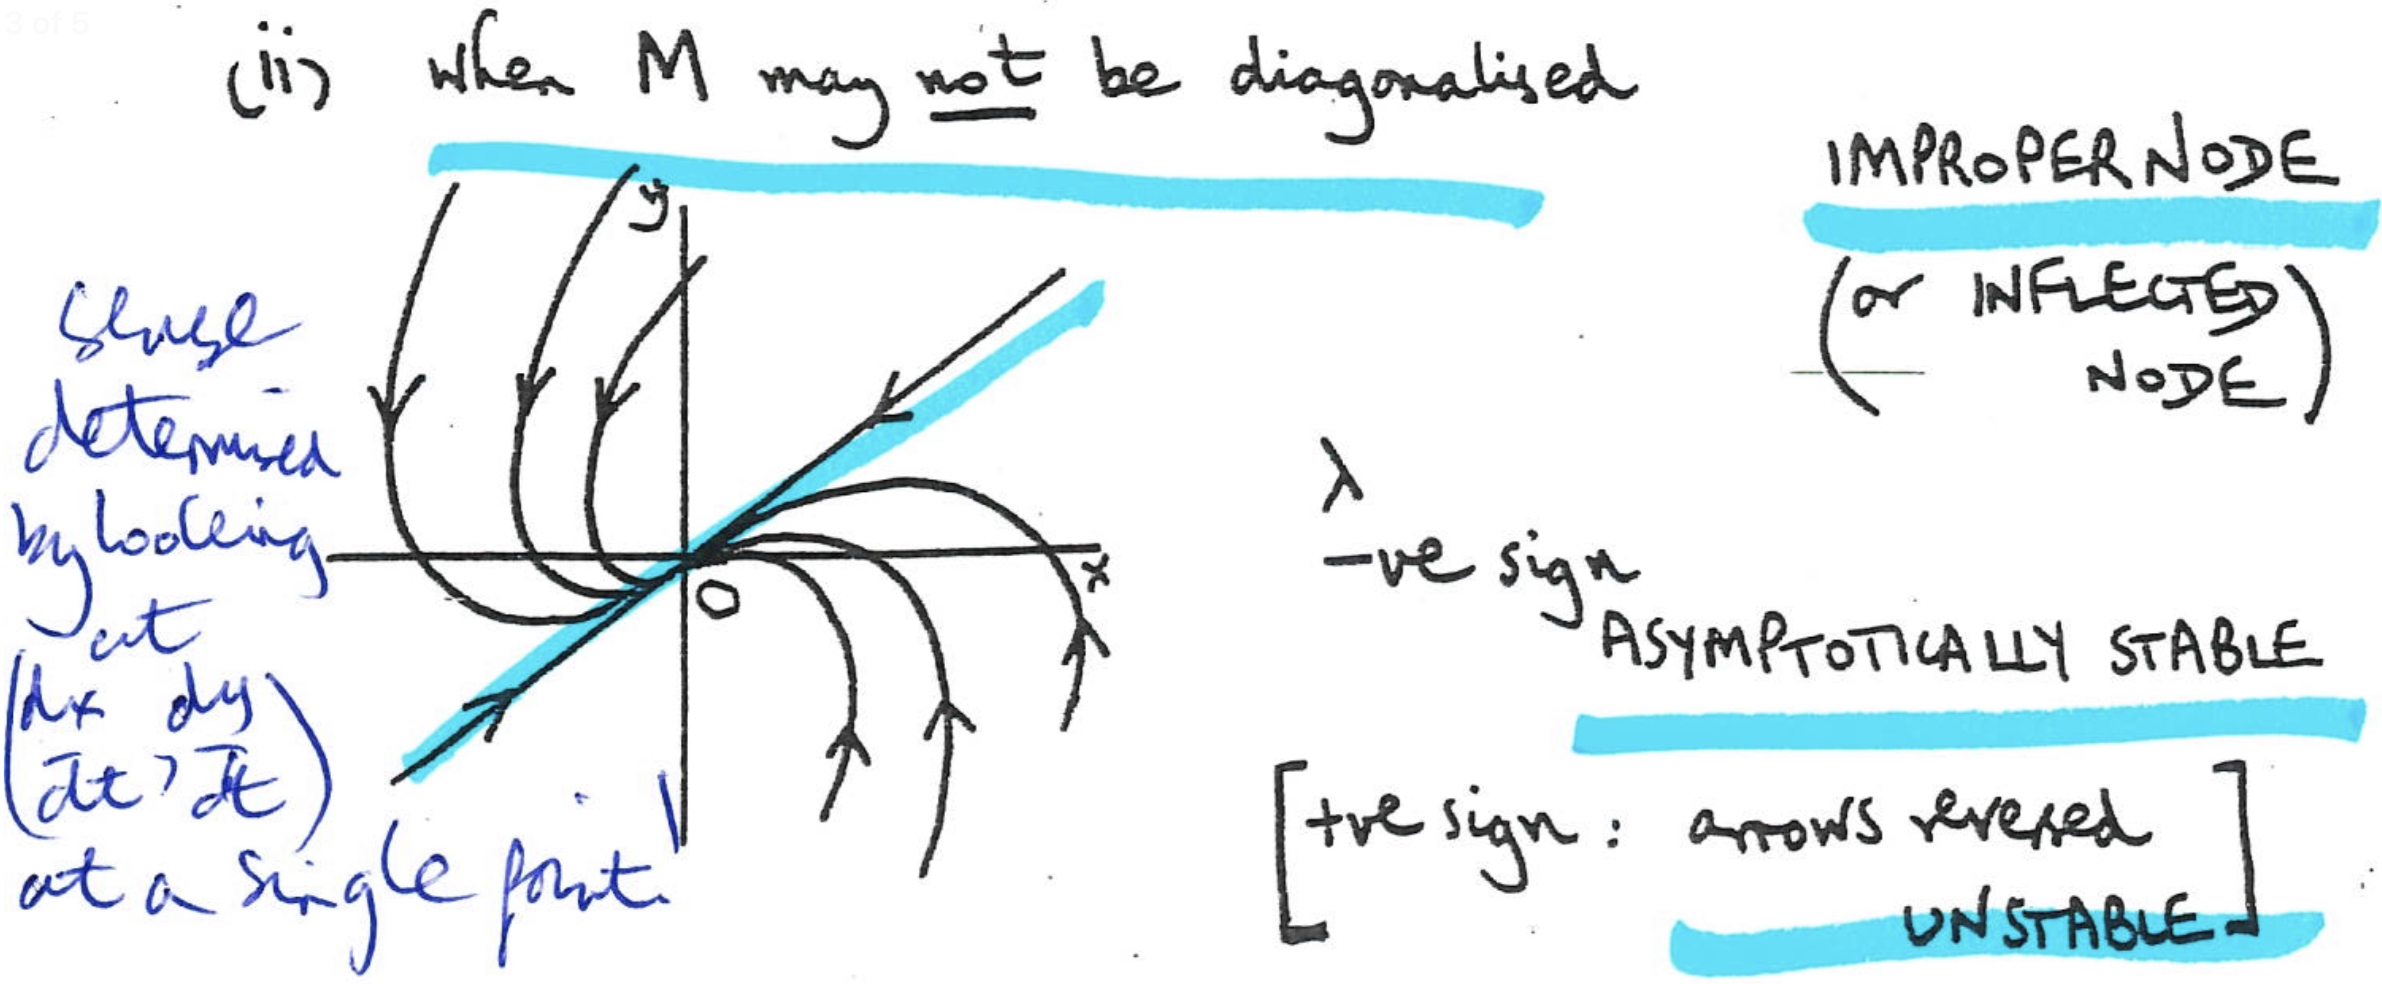 3 of 5
(ii) when M may not be diagonalised
IMPROPER NODE
(or INFLECTED
NODE)
y
x
O
sense
determined
by looking
at
(dx/dt, dy/dt)
at a single point!
λ
-ve sign
ASYMPTOTICALLY STABLE
[+ve sign: arrows reversed
UNSTABLE]